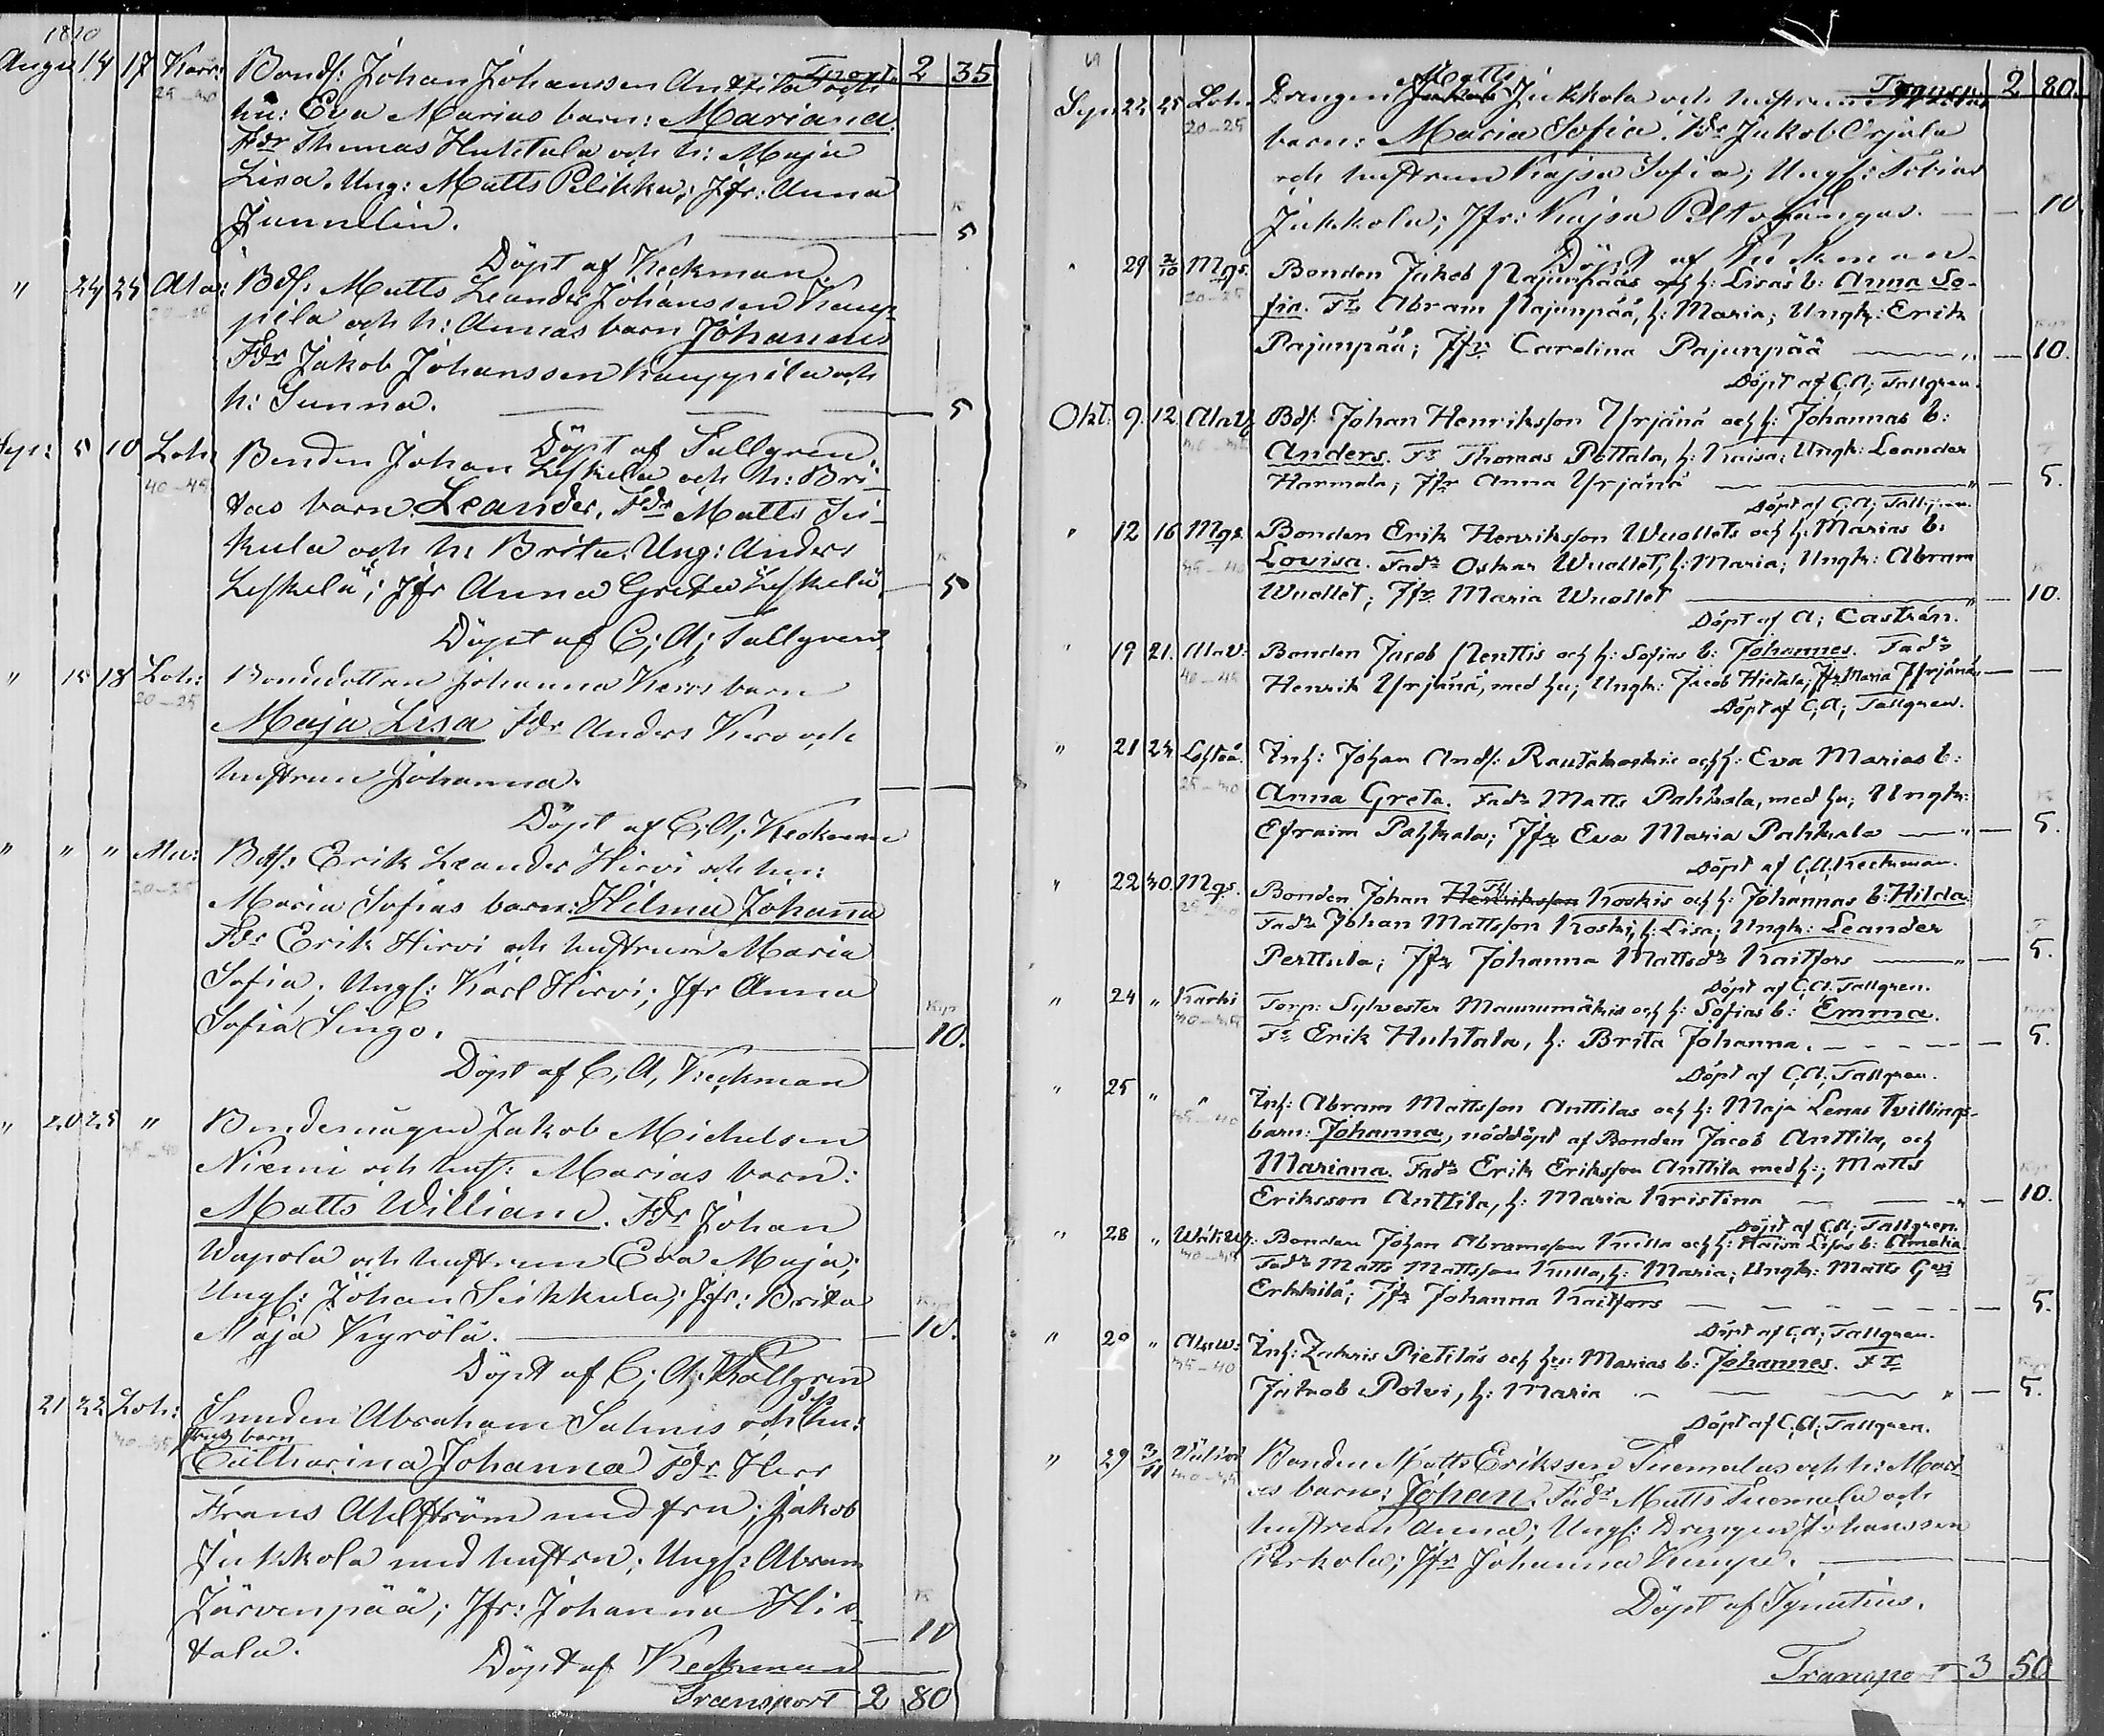 1820
Augu 14 17 Karr: Bonds: Johan Johanssen Anttila och Transp. 2 35
25–30 hu: Eva Marias barn: Mariana.
Fdr Thomas Huhtala och h: Maja
Lisa. Ung: Matts Pilikka; Jfr: Anna
Junnelin. 5
Döpt af Keckman.
" 24 25 Ala: Bds: Matts Leander Johanssen Kaup-
pila och h: Annas barn Johannes
Fdr Jakob Johanssen Kauppila och
h: Sunna. 5
Döpt af Tallgren
Sep: 5 10 Loh: Bonden Johan Leskelä och h: Bri-
40–45 tas barn Leander. Fdr Matts Sis-
kula och h: Brita. Ung: Anders
Leskelä; Jfr Anna Greta Leskelä 5
Döpt af C; A; Tallgren
" 15 18 Loh: Bondedottren Johanna Keros barn
20–25 Maja Lisa Fdr Anders Kero och
hustrun Johanna.
Döpt af C; A; Keckman
" " " Ala: Bds: Erik Leander Hirvi och hu:
20–25 Maria Sofias barn: Hilma Johanna
Fdr Erik Hirvi och hustrun Maria
Sofia; Ungl: Karl Hirvi; Jfr Anna
Sofia Singo. 10.
Döpt af C, A, Keckman
" 20 25 " Bondemågen Jakob Michelsen
35–40 Niemi och huf: Marias barn:
Matts William. Fdr Johan
Wapola och hustrun Eva Maja;
Ungl: Johan Siikkula; Jfr: Brita
Maja Kyrölä. 10.
Döpt af C; A; Tallgren
21 22 Loh: Smeden Abraham Salmis och dess hu:
strus barn
Catharina Johanna Fdr Herr
Frans Ahlström med fru; Jakob
Jukkola med hustru; Ungl: Abram
Järvenpää; Jfr: Johanna Hie-
tala. 10
Döpt af Keckman
Transport 2 80
Sep: 22 25 Loh. Drengen Matts Jukkola och hustrun Transp. 2 80.
20–25 barn: Maria Sofia. Fdr Jakob Orjala
och hustrun Kajsa Sofia; Ungl: Tobias
Jukkola; Jfr: Kajsa Peltokangas. 10
Döpt af Keckman
" 29 2/10 Mgs. Bonden Jakob Pajunpääs och h: Lisas b: Anna So-
20–25 fia. Fr Abram Pajunpää, h: Maria; Ungk: Erik
Pajunpää; Jfr Carolina Pajunpää 10.
Döpt af C; A; Tallgren.
Okt: 9. 12. Alav. Bds: Johan Henriksson Yrjänä och h: Johannas b:
Anders. Fr Thomas Pottala, h: Kaisa; Ungk: Leander
Harmala; Jfr Anna Yrjänä 5.
Döpt af C; A; Tallgren
" 12 16 Mgs. Bonden Erik Henriksson Wuollets och h: Marias b:
35–40 Lovisa. Fadr Oskar Wuollet, h: Maria; Ungk: Abram
Wuollet; Jfr Maria Wuollet 10.
Döpt af A; Castrén.
" 19 21. Alav: Bonden Jacob Penttis och h: Sofias b: Johannes. Fadr
40–45 Henrik Yrjänä, med hu; Ungk: Jacob Hietala; Jfr Maria Yrjänä
Döpt af C; A; Tallgren.
" 21 23 Loheå: Inh: Johan Ands: Rautakoskis och h: Eva Marias b:
25–30 Anna Greta. Fadr Matts Pahkala, med hu; Ungk:
Efraim Pahkala; Jfr Eva Maria Pahkala 5.
Döpt af C. A. Keckman.
" 22 30. Mgs. Bonden Johan Henriksson Koskis och h: Johannas b: Hilda
25–30 Fadr Johan Mattsson Koski, h: Lisa; Ungk: Leander
Perttula; Jfr Johanna Mattsdr Kaitfors 5.
Döpt af C. A. Tallgren.
" 24 " Karhi Torp: Sylvester Maunumäkis och h: Sofias b: Emma.
30–35 Fr Erik Huhtala, h: Brita Johanna. 5.
Döpt af C; A; Tallgren.
" 25 " " Inh: Abram Mattsson Anttilas och h: Maja Lenas tvillings-
35–40 barn: Johanna, nöddöpt af Bonden Jacob Anttila, och
Mariana. Fadr Erik Eriksson Anttila med h:; Matts
Eriksson Anttila, h: Maria Kristina 10.
Döpt af C. A; Tallgren.
" 28 " Bonden Johan Abramsson Kulla och h: Kaisa Lisas b: Amalia.
Fadr Matts Mattsson Kulla, h: Maria; Ungk: Matts
Erkkilä; Jfr Johanna Kaitfors 5.
Döpt af C; A; Tallgren.
" 20 " Alaw: Inh: Zakris Pietiläs och hu: Marias b: Johannes. Fr
35–40 Jakob Polvi, h: Maria 5.
Döpt af C; A; Tallgren.
" 29 3/11 Bonden Matts Erikssen Tuomalas och h: Mari-
as barn: Johan. Fadr Matts Tuomala och
hustrun Anna; Ungl: Drengen Johanssen
Perkola; Jfr Johanna Kempe.
Döpt af Ignatius.
Transport 3 50